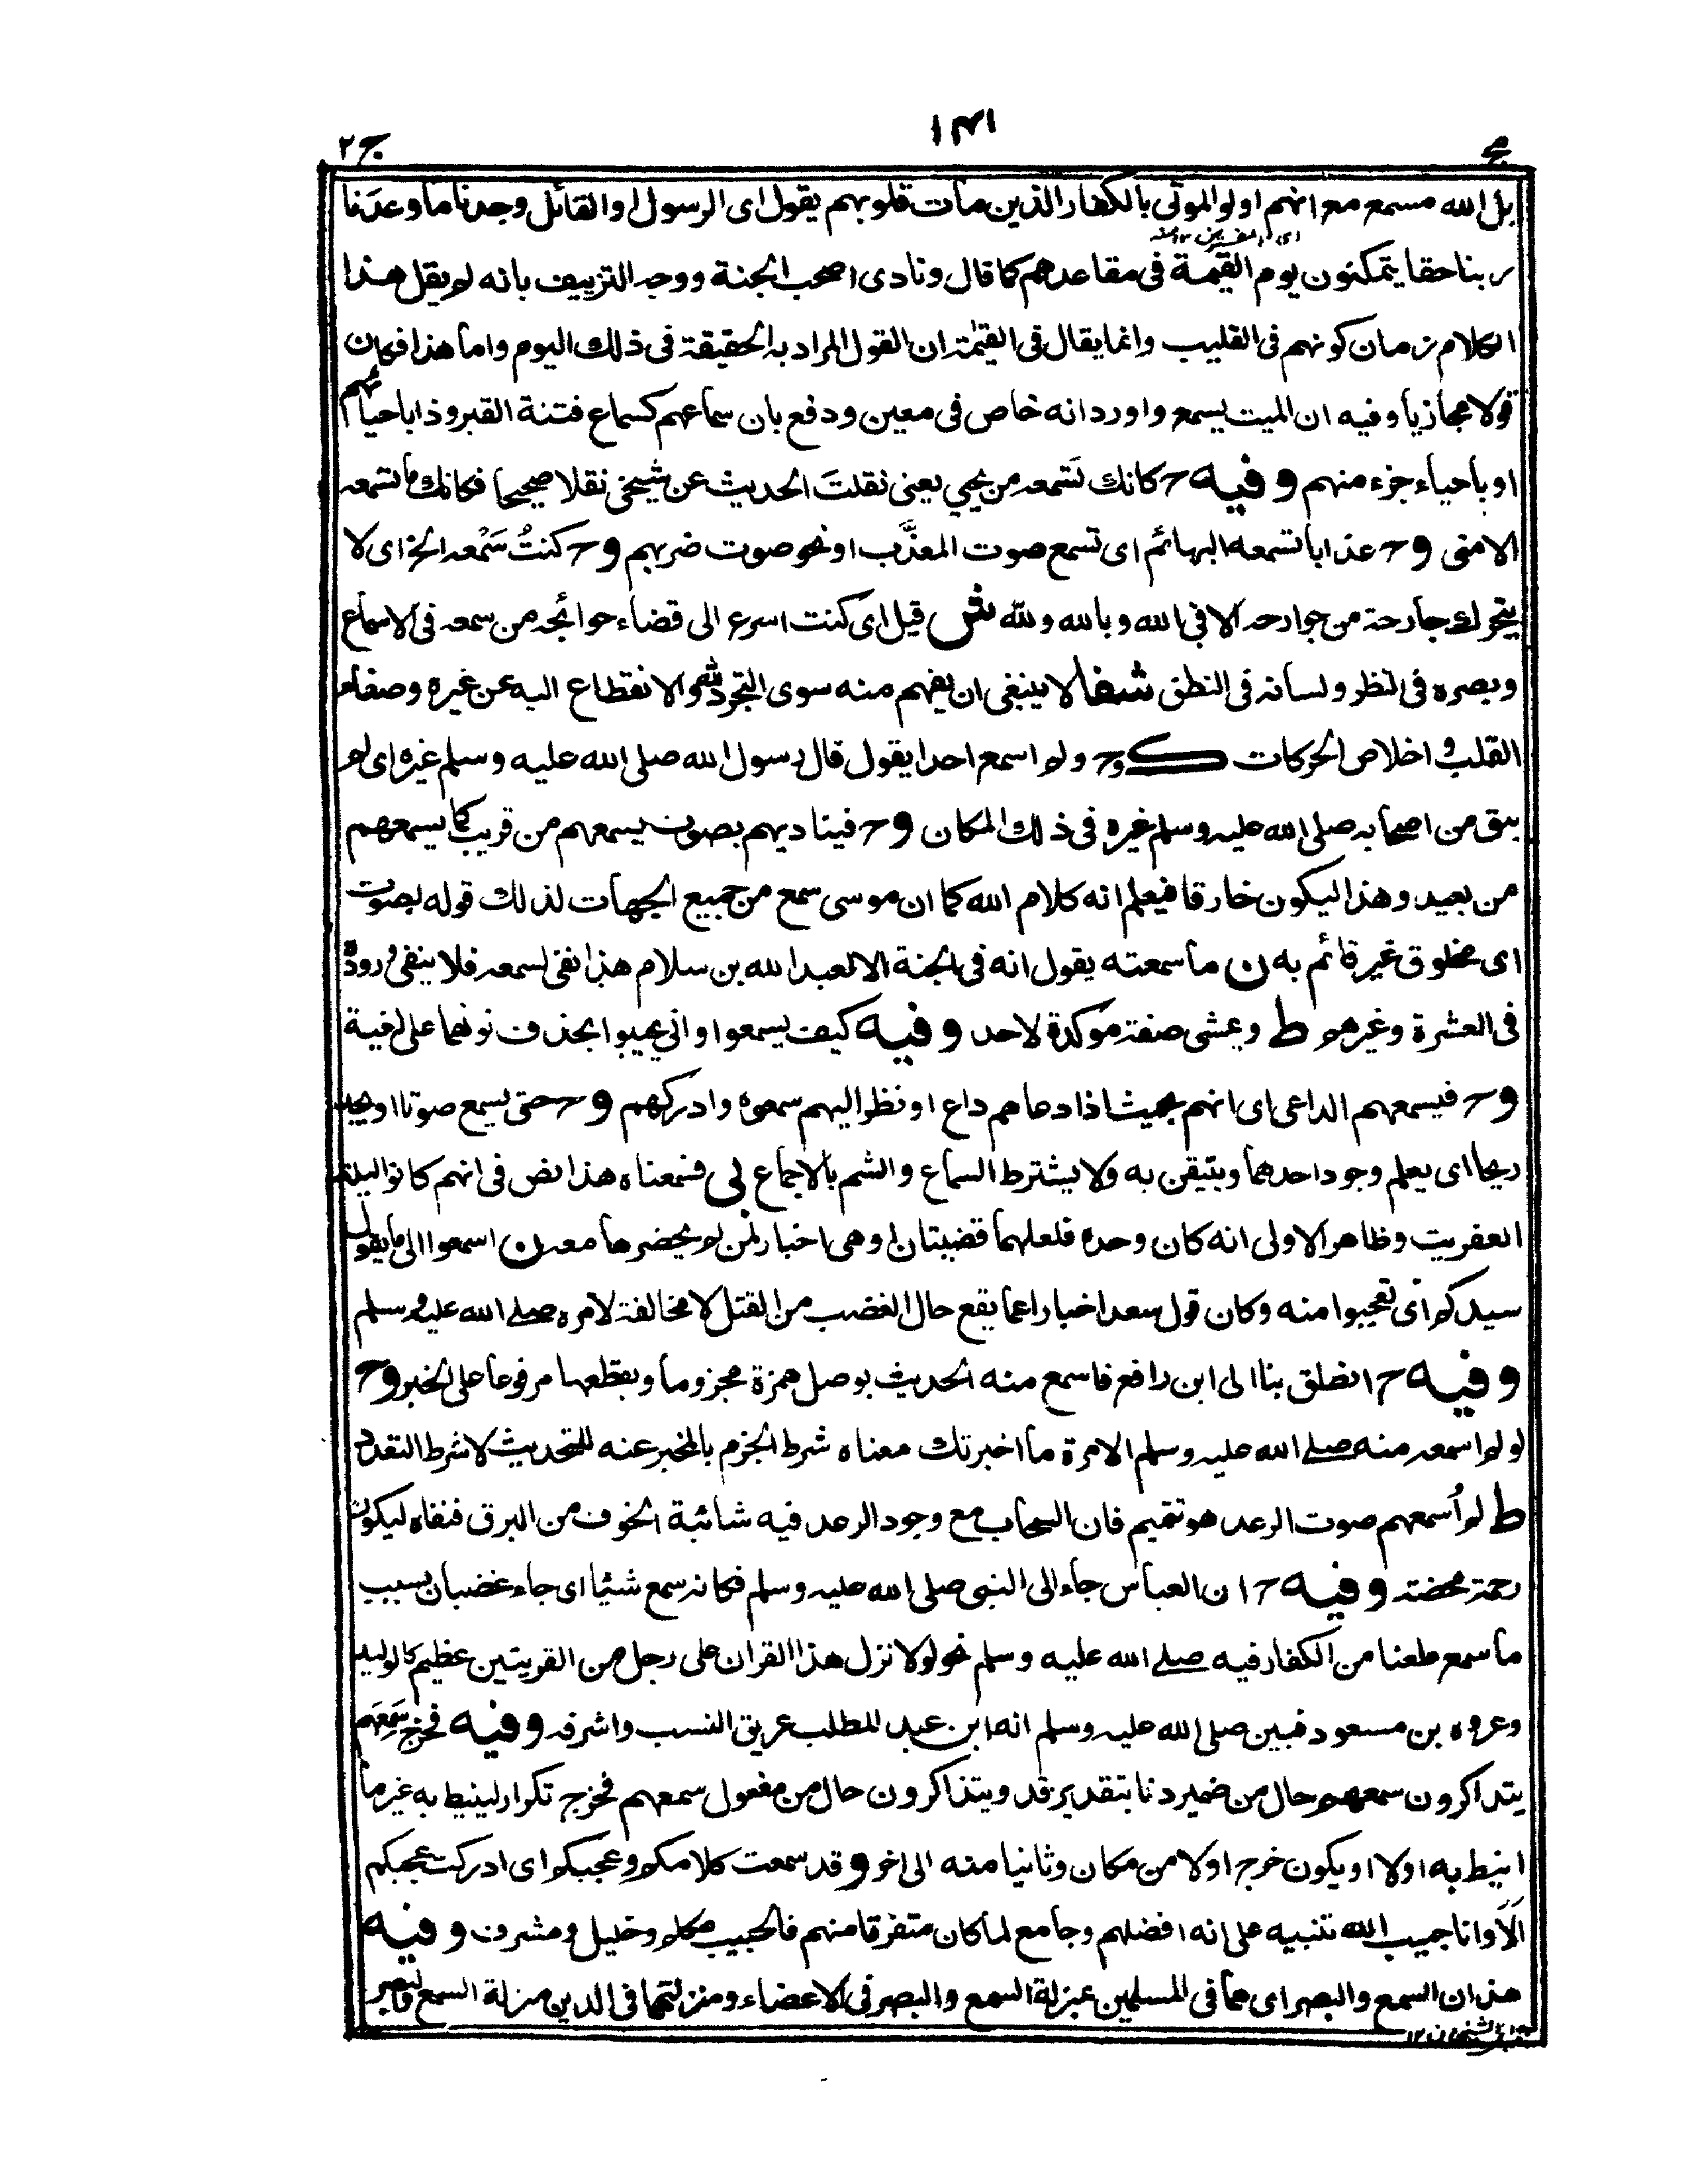 ج ٢
١٤١
بل الله مسمع مع انهم اولوا الموتى بالكفار الذين ماتت قلوبهم يقول اى الرسول او القائل وجدنا ما وعدنا
ربنا حقا يتمكنون يوم القيمة فى مقاعدهم كما قال ونادى اصحب الجنة ووجه التزييف بانه لم يقل هذا
الكلام زمان كونهم فى القليب وانما يقال فى القيمة ان القول المراد به الحقيقة فى ذلك اليوم واما هذا فكان
قولا مجازيا وفيه ان الميت يسمع واورد انه خاص فى معين ودفع بان سماعهم كسماع فتنة القبر وذا باحيائهم
او باحياء جزء منهم وفيه ح كانك تسمعه من يحيي يعنى نقلت الحديث عن شيخى نقلا صحيحا فكانك ما تسمعه
الا منى و ح عذابا تسمعه البهائم اى تسمع صوت المعذَّب او نحو صوت ضربهم و ح كنتُ سَمْعه الخ اى لا
يتحرك جارحة من جوارحه الا فى الله وبالله ولله ش قيل اى كنت اسرع الى قضاء حوائجه من سمعه فى الاسماع
وبصره فى النظر ولسانه فى النطق شفا لا ينبغى ان يفهم منه سوى التجرد لله والانقطاع اليه عن غيره وصفاء
القلب و اخلاص الحركات ك و ح ولم اسمع احدا يقول قال رسول الله صلى الله عليه وسلم غيره اى لم
يبق من اصحابه صلى الله عليه وسلم غيره فى ذلك المكان و ح فيناديهم بصوت يسمعهم من قريب كما يسمعهم
من بعيد وهذا ليكون خارقا فيعلم انه كلام الله كما ان موسى سمع من جميع الجهات لذلك قوله بصوت
اى مخلوق غير قائم به ن ما سمعته يقول انه فى الجنة الا لعبد الله بن سلام هذا نفى لسمعه فلا ينفى وروده
فى العشرة وغيرهم ط ويمشى صفة موكدة لاحد وفيه كيف يسمعوا وانى يجيبوا بحذف نونهما على لغية
و ح فيسمعهم الداعى اى انهم بحيث اذا دعاهم داع او نظر اليهم سمعوه وادركهم و ح حتى يسمع صوتا او يجد
ريحا اى يعلم وجود احدهما ويتيقن به ولا يشترط السماع والشم بالاجماع لى فسمعناه هذا نص فى انهم كانوا ليلة
العفريت وظاهر الاولى انه كان وحده فلعلهما قضيتان او هى اخبار لمن لم يحضرها معه ن اسمعوا الى ما يقول
سيدكم اى تعجبوا منه وكان قول سعد اخبارا عما يقع حال الغضب من القتل لا مخالفة لامره صلى الله عليه وسلم
وفيه ح انطلق بنا الى ابن رافع فاسمع منه الحديث بوصل همزة مجزوما وبقطعها مرفوعا على الخبر و ح
لو لم اسمعه منه صلى الله عليه وسلم الا مرة ما اخبرتك معناه شرط الجزم بالمخبر عنه للتحديث لا شرط التعدد
ط لم اُسمعهم صوت الرعد هو تتميم فان السحاب مع وجود الرعد فيه شائبة الخوف من البرق فنفاه ليكون
رحمة محضة وفيه ح ان العباس جاء الى النبى صلى الله عليه وسلم فكانه سمع شيئا اى جاء غضبان بسبب
ما سمع طعنا من الكفار فيه صلى الله عليه وسلم نحو لولا نزل هذا القران على رجل من القريتين عظيم كالوليد
وعروه بن مسعود فبين صلى الله عليه وسلم انه ابن عبد المطلب عريق النسب واشرفه وفيه فخرج سمعهم
يتذاكرون سمعهم حال من ضمير دنا بتقدير قد ويتذاكرون حال من مفعول سمعهم فخرج تكرار لينيط به غير ما
انيط به اولا او يكون خرج اولا من مكان وثانيا منه الى اخر و قد سمعت كلامكم وعجبكم اى ادركت عجبكم
اَلَا وانا حبيب الله تنبيه على انه افضلهم وجامع لما كان متفرقا منهم فالحبيب مكلم وخليل ومشرف وفيه
هذان السمع والبصر اى هما فى المسلمين بمنزلة السمع والبصر فى الاعضاء ومنزلتهما فى الدين منزلة السمع والبصر